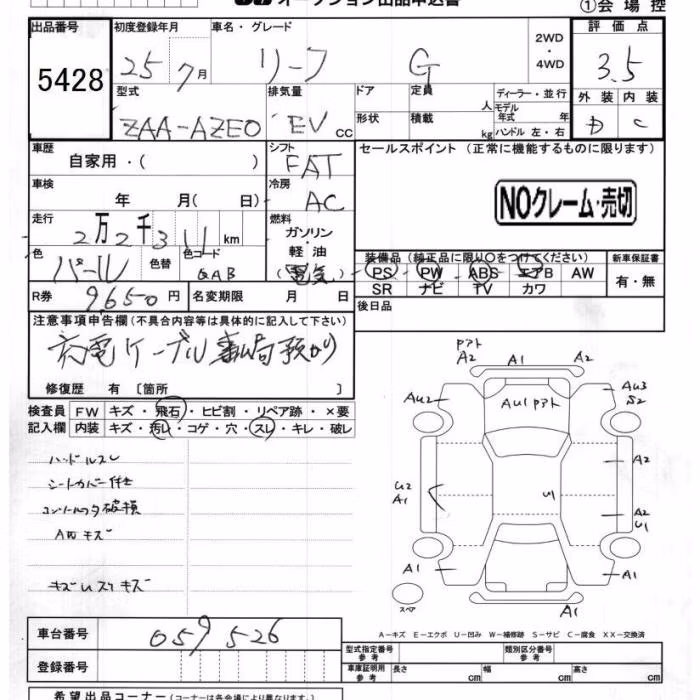 オークション出品申込書
①会場控
出品番号 初度登録年月 車名・グレード 2WD・4WD 評価点
5428 25 7月 リーフ G 3.5
型式 排気量 ドア 定員 人 ディーラー・並行 外装 内装
ZAA-AZE0 EV CC 形状 積載 kg モデル年式 年 ハンドル 左・右 D C
車歴 シフト セールスポイント (正常に機能するものに限ります)
自家用・( ) FAT
車検 冷房
年 月( 日) AC NOクレーム・売切
走行 燃料
2万2千311km ガソリン・軽油
色 色替 色コード (電気) 装備品 (純正品に限り○をつけてください) 新車保証書
パール QAB PS PW ABS エアB AW 有・無
SR ナビ TV カワ
R券 9650円 名変期限 月 日 後日品
注意事項申告欄(不具合内容等は具体的に記入して下さい)
充電ケーブル事ム局預かり
修復歴 有 〔箇所 〕
検査員 FW キズ・飛石・ヒビ割・リペア跡・×要
記入欄 内装 キズ・汚レ・コゲ・穴・スレ・キレ・破レ
ハンドルスレ
シートカバー付き
破損
A西キズ
キズUスリキズ
アト
A2 A1 A2
AU2 AU1アト AU3
S2
A2
U2
A1 U1 A2
U1
A1 A1
スペア A1
A-キズ E-エクボ U-凹み W-補修跡 S-サビ C-腐食 XX-交換済
車台番号 059526
型式指定番号 参考 類別区分番号 参考
登録番号 車庫証明用 参考 長さ cm 幅 cm 高さ cm
希望出品コーナー(コーナーは各会場により異なります)